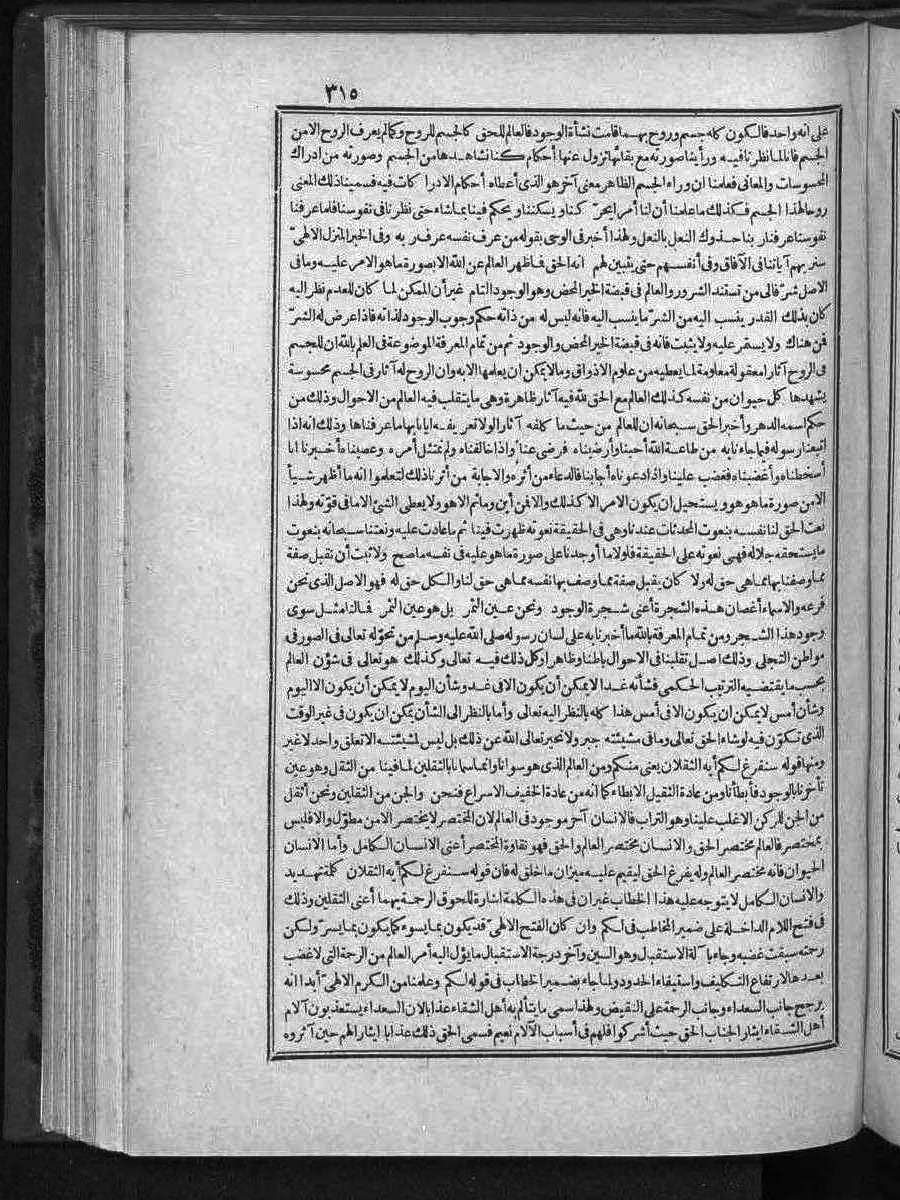 ٣١٥
على انه واحد فالكون كله جسم وروح بهما قامت نشأة الوجود فالعالم للحق كالجسم للروح وكما لم يعرف الروح الا من
الجسم فانا لما نظرنا فيه ورأينا صورته مع بقائها تزول عنها أحكام كنا نشاهدها من الجسم وصورته من ادراك
المحسوسات والمعانى فعلمنا ان وراء الجسم الظاهر معنى آخر هو الذى أعطاه أحكام الادراكات فيه فسمينا ذلك المعنى
روحا لهذا الجسم فكذلك ما علمنا أن لنا أمرا يحرّكنا ويسكننا ويحكم فينا بما شاء حتى نظرنا فى نفوسنا فلما عرفنا
نفوسنا عرفنا ربنا حذوك النعل بالنعل ولهذا أخبر فى الوحى بقوله من عرف نفسه عرف ربه وفى الخبر المنزل الالهىّ
سنريهم آياتنا فى الآفاق وفى أنفسهم حتى يتبين لهم انه الحق فما ظهر العالم عن الله الا بصورة ما هو الامر عليه وما فى
الاصل شرّ فالى من تستند الشرور والعالم فى قبضة الخير المحض وهو الوجود التام غير أن الممكن لما كان للعدم نظر اليه
كان بذلك القدر ينسب اليه من الشرّ ما ينسب اليه فانه ليس له من ذاته حكم وجوب الوجود لذاته فاذا عرض له الشرّ
فمن هناك ولا يستمر عليه ولا يثبت فانه فى قبضة الخير المحض والوجود ثم من تمام المعرفة الموضوعة فى العلم بالله ان للجسم
فى الروح آثارا معقولة معلومة لما يعطيه من علوم الاذواق وما لا يمكن ان يعلمها الا به وان الروح له آثار فى الجسم محسوسة
يشهدها كل حيوان من نفسه كذلك العالم مع الحق لله فيه آثار ظاهرة وهى ما يتقلب فيه العالم من الاحوال وذلك من
حكم اسمه الدهر وأخبر الحق سبحانه ان للعالم من حيث ما كلفه آثارا لولا تعريفه ايانا بها ما عرفناها وذلك انه اذا
اتبعنا رسوله فيما جاءنا به من طاعة الله أحبنا وأرضيناه فرضى عنا واذا خالفناه ولم نمتثل أمره وعصيناه أخبرنا انا
أسخطناه وأغضبناه فغضب علينا واذا دعوناه أجابنا فالدعاء من أثره والاجابة من أثرنا ذلك لتعلموا انه ما أظهر شيأ
الا من صورة ما هو هو ويستحيل ان يكون الامر الا كذلك والا فمن أين وما ثم الا هو ولا يعطى الشئ الا ما فى قوّته ولهذا
نعت الحق لنا نفسه بنعوت المحدثات عندنا وهى فى الحقيقة نعوته ظهرت فينا ثم ما عادت عليه ونعتنا سبحانه بنعوت
ما يستحقه جلاله فهى نعوته على الحقيقة فلولا ما أوجدنا على صورة ما هو عليه فى نفسه ما صح ولا ثبت أن نقبل صفة
مما وصفنا بها مما هى حق له ولا كان يقبل صفة مما وصف بها نفسه مما هى حق لنا والكل حق له فهو الاصل الذى نحن
فرعه والاسماء أغصان هذه الشجرة أعنى شجرة الوجود ونحن عين الثمر بل هو عين الثمر فما لنا مثل سوى
وجود هذا الشجر ومن تمام المعرفة بالله ما أخبرنا به على لسان رسوله صلى الله عليه وسلم من تحوّله تعالى فى الصور فى
مواطن التجلى وذلك اصل تقلبنا فى الاحوال باطنا وظاهرا وكل ذلك فيه تعالى وكذلك هو تعالى فى شؤن العالم
بحسب ما يقتضيه الترتيب الحكمى فشأنه غدا لا يمكن أن يكون الا فى غد وشأن اليوم لا يمكن أن يكون الا اليوم
وشأن أمس لا يمكن ان يكون الا فى أمس هذا كله بالنظر اليه تعالى وأما بالنظر الى الشأن يمكن ان يكون فى غير الوقت
الذى تكوّن فيه لو شاء الحق تعالى وما فى مشيئته جبر ولا تحير تعالى الله عن ذلك بل ليس لمشيئته الا تعلق واحد لا غير
ومنها قوله سنفرغ لكم أيه الثقلان يعنى منكم ومن العالم الذى هو سوانا وانما سمانا بالثقلين لما فينا من الثقل وهو عين
تأخرنا بالوجود فأبطأنا ومن عادة الثقيل الابطاء كما انه من عادة الخفيف الاسراع فنحن والجن من الثقلين ونحن أثقل
من الجن للركن الاغلب علينا وهو التراب فالانسان آخر موجود فى العالم لان المختصر لا يختصر الا من مطوّل والا فليس
بمختصر فالعالم مختصر الحق والانسان مختصر العالم والحق فهو نقاوة المختصر أعنى الانسان الكامل وأما الانسان
الحيوان فانه مختصر العالم وله يفرغ الحق ليقيم عليه ميزان ما خلق له فان قوله سنفرغ لكم أيه الثقلان كلمة تهديد
والانسان الكامل لا يتوجه عليه هذا الخطاب غير ان فى هذه الكلمة اشارة للحوق الرحمة بهما أعنى الثقلين وذلك
فى فتح اللام الداخلة على ضمير المخاطب فى لكم وان كان الفتح الالهىّ قد يكون بما يسوء كما يكون بما يسرّ ولكن
رحمته سبقت غضبه وجاء بآلة الاستقبال وهو السين وآخر درجة الاستقبال ما يؤل اليه أمر العالم من الرحمة التى لا غضب
بعدها لارتفاع التكليف واستيفاء الحدود ولما جاء بضمير الخطاب فى قوله لكم وعلمنا من الكرم الالهىّ أبدا انه
يرجح جانب السعداء وجانب الرحمة على النقيض ولهذا سمى ما يتألم به أهل الشقاء عذابا لان السعداء يستعذبون آلام
أهل الشقاء ايثارا لجناب الحق حيث أشركوا فلهم فى أسباب الآلام نعيم فسمى الحق ذلك عذابا ايثارا لهم حين آثروه